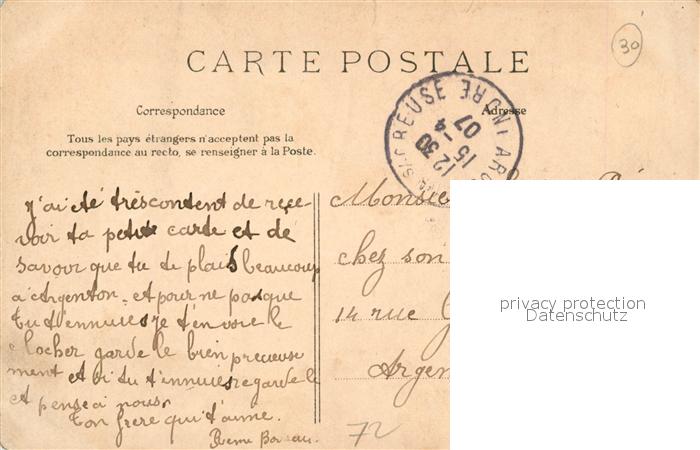 30
CARTE POSTALE
Correspondance
Adresse
Tous les pays étrangers n'acceptent pas la
correspondance au recto, se renseigner à la Poste.
CREUSE INDRE
12 30
15 -4
07
j'ai été trèscontent de rece
voir ta petite carte et de
savoir que tu te plais beaucoup
a Argenton. et pour ne pas que
tu t'ennuies je t'envoie le
clocher garde le bien precieuse
ment et si tu t'ennuies regarde le
et pense a nous.
ton frere qui t'aime.
Monsie
chez son
14 rue
Argen
72
privacy protection
Datenschutz